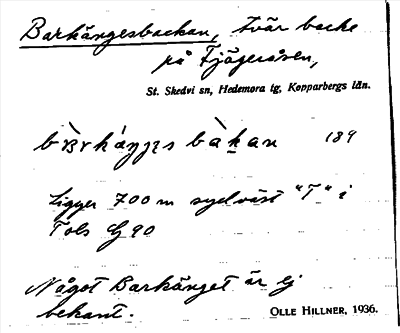 Barkängesbackan, tvär backe
på Tjägeråsen,
St. Skedvi sn, Hedemora tg, Kopparbergs län.
189
Ligger 700 m sydväst "T" i
Tols G 90
Något Barkänget är ej
bekant.
OLLE HILLNER, 1936.